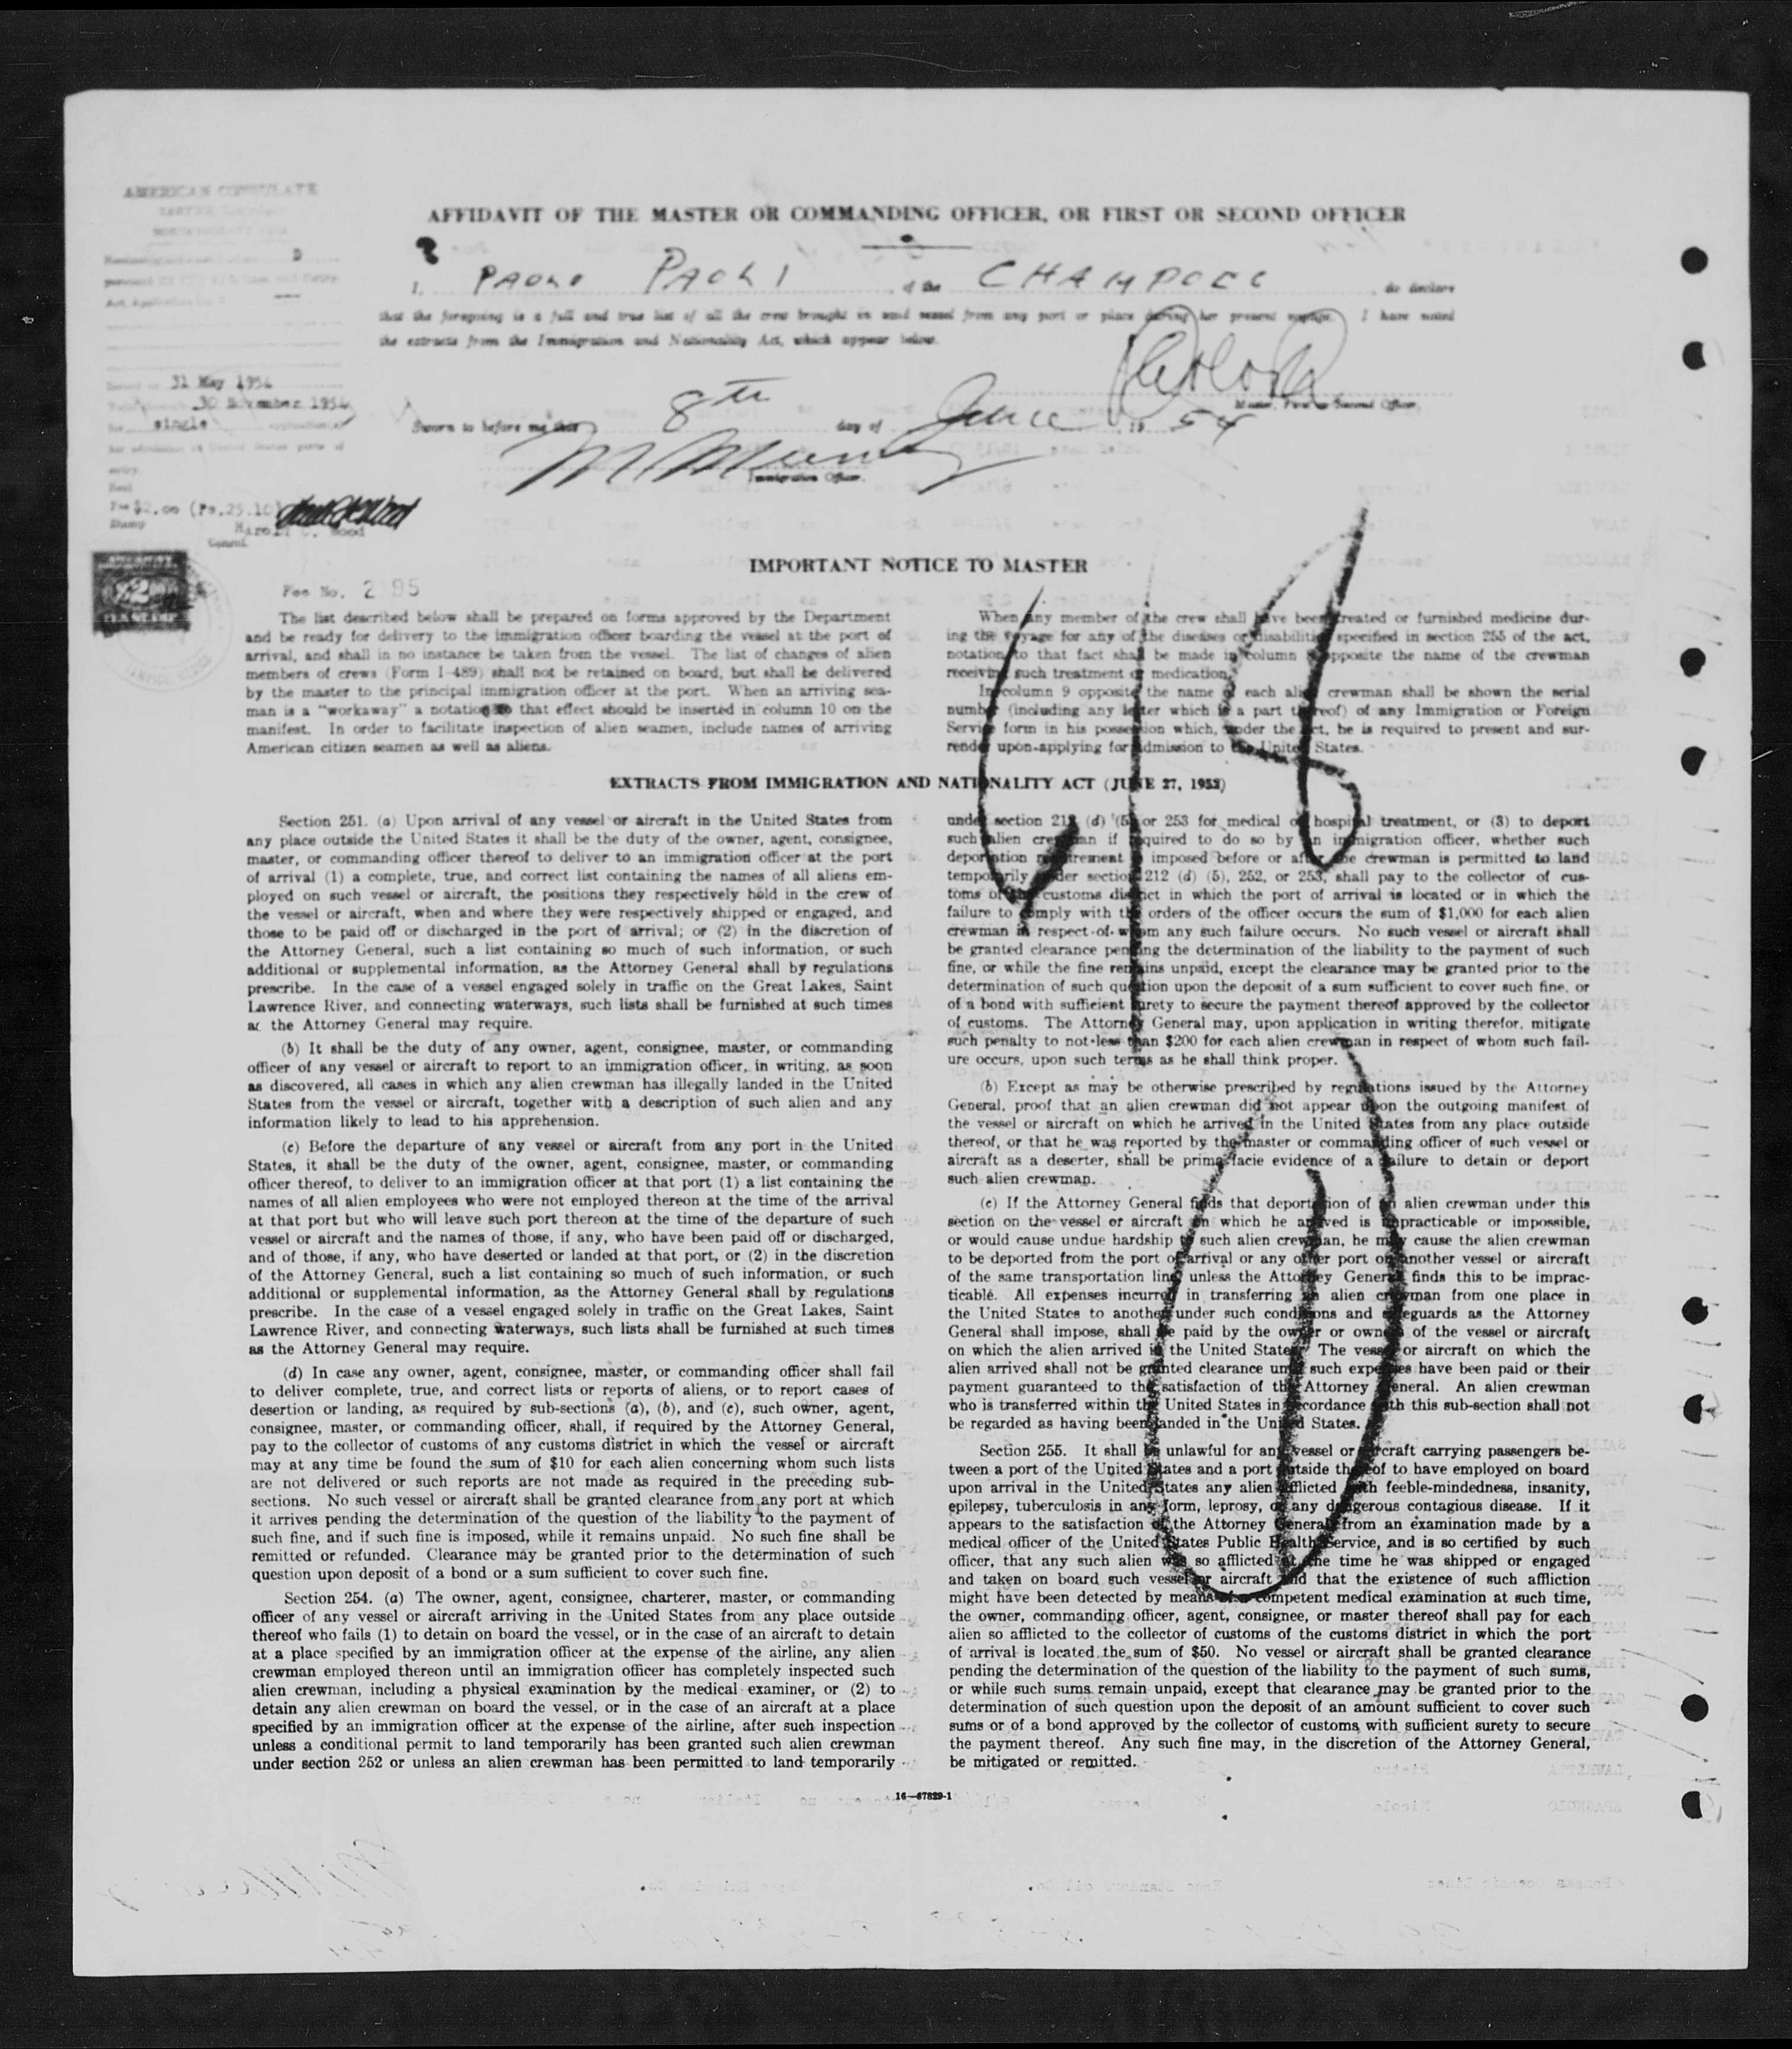 AMERICAN CONSULATE
AFFIDAVIT OF THE MASTER OR COMMANDING OFFICER, OR FIRST OR SECOND OFFICER
I, PAOLO PAOLI of the CHAMPOEG, do declare
that the foregoing is a full and true list of all the crew brought in said vessel from any port or place during her present voyage. I have noted
the extracts from the Immigration and Nationality Act, which appear below.
Master, First or Second Officer
31 May 1954
30 November 1954
single
Sworn to before me this 8th day of June 19 54
Immigration Officer
Fee $2.00 (Ps.25.10)
Harold C. Wood
Consul
Fee No. 2195
IMPORTANT NOTICE TO MASTER
The list described below shall be prepared on forms approved by the Department
and be ready for delivery to the immigration officer boarding the vessel at the port of
arrival, and shall in no instance be taken from the vessel. The list of changes of alien
members of crews (Form I-489) shall not be retained on board, but shall be delivered
by the master to the principal immigration officer at the port. When an arriving sea-
man is a "workaway" a notation to that effect should be inserted in column 10 on the
manifest. In order to facilitate inspection of alien seamen, include names of arriving
American citizen seamen as well as aliens.
When any member of the crew shall have been treated or furnished medicine dur-
ing the voyage for any of the diseases or disabilities specified in section 255 of the act,
notation to that fact shall be made in column opposite the name of the crewman
receiving such treatment or medication.
In column 9 opposite the name of each alien crewman shall be shown the serial
number (including any letter which is a part thereof) of any Immigration or Foreign
Service form in his possession which, under the act, he is required to present and sur-
render upon applying for admission to the United States.
EXTRACTS FROM IMMIGRATION AND NATIONALITY ACT (JUNE 27, 1952)
Section 251. (a) Upon arrival of any vessel or aircraft in the United States from
any place outside the United States it shall be the duty of the owner, agent, consignee,
master, or commanding officer thereof to deliver to an immigration officer at the port
of arrival (1) a complete, true, and correct list containing the names of all aliens em-
ployed on such vessel or aircraft, the positions they respectively hold in the crew of
the vessel or aircraft, when and where they were respectively shipped or engaged, and
those to be paid off or discharged in the port of arrival; or (2) in the discretion of
the Attorney General, such a list containing so much of such information, or such
additional or supplemental information, as the Attorney General shall by regulations
prescribe. In the case of a vessel engaged solely in traffic on the Great Lakes, Saint
Lawrence River, and connecting waterways, such lists shall be furnished at such times
as the Attorney General may require.
(b) It shall be the duty of any owner, agent, consignee, master, or commanding
officer of any vessel or aircraft to report to an immigration officer, in writing, as soon
as discovered, all cases in which any alien crewman has illegally landed in the United
States from the vessel or aircraft, together with a description of such alien and any
information likely to lead to his apprehension.
(c) Before the departure of any vessel or aircraft from any port in the United
States, it shall be the duty of the owner, agent, consignee, master, or commanding
officer thereof, to deliver to an immigration officer at that port (1) a list containing the
names of all alien employees who were not employed thereon at the time of the arrival
at that port but who will leave such port thereon at the time of the departure of such
vessel or aircraft and the names of those, if any, who have been paid off or discharged,
and of those, if any, who have deserted or landed at that port, or (2) in the discretion
of the Attorney General, such a list containing so much of such information, or such
additional or supplemental information, as the Attorney General shall by regulations
prescribe. In the case of a vessel engaged solely in traffic on the Great Lakes, Saint
Lawrence River, and connecting waterways, such lists shall be furnished at such times
as the Attorney General may require.
(d) In case any owner, agent, consignee, master, or commanding officer shall fail
to deliver complete, true, and correct lists or reports of aliens, or to report cases of
desertion or landing, as required by sub-sections (a), (b), and (c), such owner, agent,
consignee, master, or commanding officer, shall, if required by the Attorney General,
pay to the collector of customs of any customs district in which the vessel or aircraft
may at any time be found the sum of $10 for each alien concerning whom such lists
are not delivered or such reports are not made as required in the preceding sub-
sections. No such vessel or aircraft shall be granted clearance from any port at which
it arrives pending the determination of the question of the liability to the payment of
such fine, and if such fine is imposed, while it remains unpaid. No such fine shall be
remitted or refunded. Clearance may be granted prior to the determination of such
question upon deposit of a bond or a sum sufficient to cover such fine.
Section 254. (a) The owner, agent, consignee, charterer, master, or commanding
officer of any vessel or aircraft arriving in the United States from any place outside
thereof who fails (1) to detain on board the vessel, or in the case of an aircraft to detain
at a place specified by an immigration officer at the expense of the airline, any alien
crewman employed thereon until an immigration officer has completely inspected such
alien crewman, including a physical examination by the medical examiner, or (2) to
detain any alien crewman on board the vessel, or in the case of an aircraft at a place
specified by an immigration officer at the expense of the airline, after such inspection
unless a conditional permit to land temporarily has been granted such alien crewman
under section 252 or unless an alien crewman has been permitted to land temporarily
under section 212 (d) (5) or 253 for medical or hospital treatment, or (3) to deport
such alien crewman if required to do so by an immigration officer, whether such
deportation requirement is imposed before or after the crewman is permitted to land
temporarily under section 212 (d) (5), 252, or 253, shall pay to the collector of cus-
toms of the customs district in which the port of arrival is located or in which the
failure to comply with the orders of the officer occurs the sum of $1,000 for each alien
crewman in respect of whom any such failure occurs. No such vessel or aircraft shall
be granted clearance pending the determination of the liability to the payment of such
fine, or while the fine remains unpaid, except the clearance may be granted prior to the
determination of such question upon the deposit of a sum sufficient to cover such fine, or
of a bond with sufficient surety to secure the payment thereof approved by the collector
of customs. The Attorney General may, upon application in writing therefor, mitigate
such penalty to not less than $200 for each alien crewman in respect of whom such fail-
ure occurs, upon such terms as he shall think proper.
(b) Except as may be otherwise prescribed by regulations issued by the Attorney
General, proof that an alien crewman did not appear upon the outgoing manifest of
the vessel or aircraft on which he arrived in the United States from any place outside
thereof, or that he was reported by the master or commanding officer of such vessel or
aircraft as a deserter, shall be prima facie evidence of a failure to detain or deport
such alien crewman.
(c) If the Attorney General finds that deportation of an alien crewman under this
section on the vessel or aircraft on which he arrived is impracticable or impossible,
or would cause undue hardship to such alien crewman, he may cause the alien crewman
to be deported from the port of arrival or any other port on another vessel or aircraft
of the same transportation line, unless the Attorney General finds this to be imprac-
ticable. All expenses incurred in transferring an alien crewman from one place in
the United States to another under such conditions and safeguards as the Attorney
General shall impose, shall be paid by the owner or owners of the vessel or aircraft
on which the alien arrived in the United States. The vessel or aircraft on which the
alien arrived shall not be granted clearance until such expenses have been paid or their
payment guaranteed to the satisfaction of the Attorney General. An alien crewman
who is transferred within the United States in accordance with this sub-section shall not
be regarded as having been landed in the United States.
Section 255. It shall be unlawful for any vessel or aircraft carrying passengers be-
tween a port of the United States and a port outside thereof to have employed on board
upon arrival in the United States any alien afflicted with feeble-mindedness, insanity,
epilepsy, tuberculosis in any form, leprosy, or any dangerous contagious disease. If it
appears to the satisfaction of the Attorney General, from an examination made by a
medical officer of the United States Public Health Service, and is so certified by such
officer, that any such alien was so afflicted at the time he was shipped or engaged
and taken on board such vessel or aircraft and that the existence of such affliction
might have been detected by means of a competent medical examination at such time,
the owner, commanding officer, agent, consignee, or master thereof shall pay for each
alien so afflicted to the collector of customs of the customs district in which the port
of arrival is located the sum of $50. No vessel or aircraft shall be granted clearance
pending the determination of the question of the liability to the payment of such sums,
or while such sums remain unpaid, except that clearance may be granted prior to the
determination of such question upon the deposit of an amount sufficient to cover such
sums or of a bond approved by the collector of customs with sufficient surety to secure
the payment thereof. Any such fine may, in the discretion of the Attorney General,
be mitigated or remitted.
16—67829-1